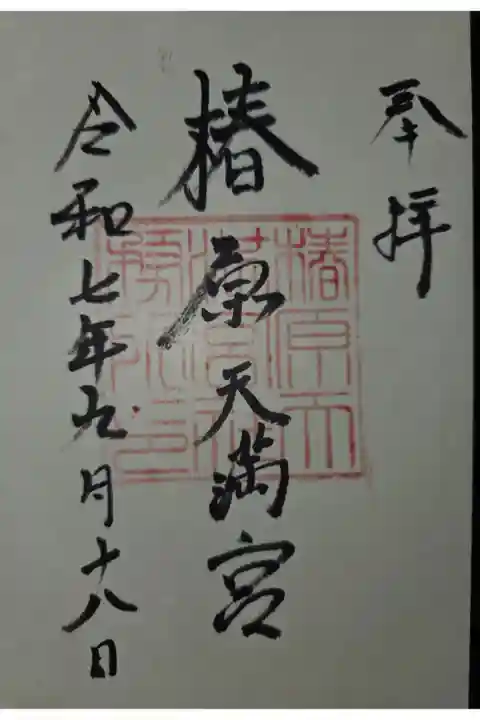 奉拝
椿原天満宮
令和七年九月十八日
椿原天
満宮社
務所之印